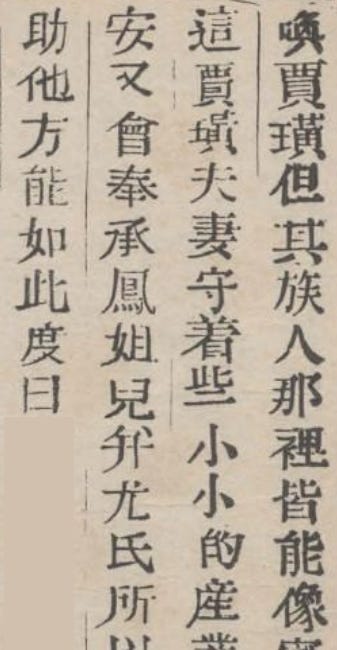 喚賈璜但其族人那裡皆能像
這賈璜夫妻守着些小小的産
安又會奉承鳳姐兒幷尤氏所
助他方能如此度日